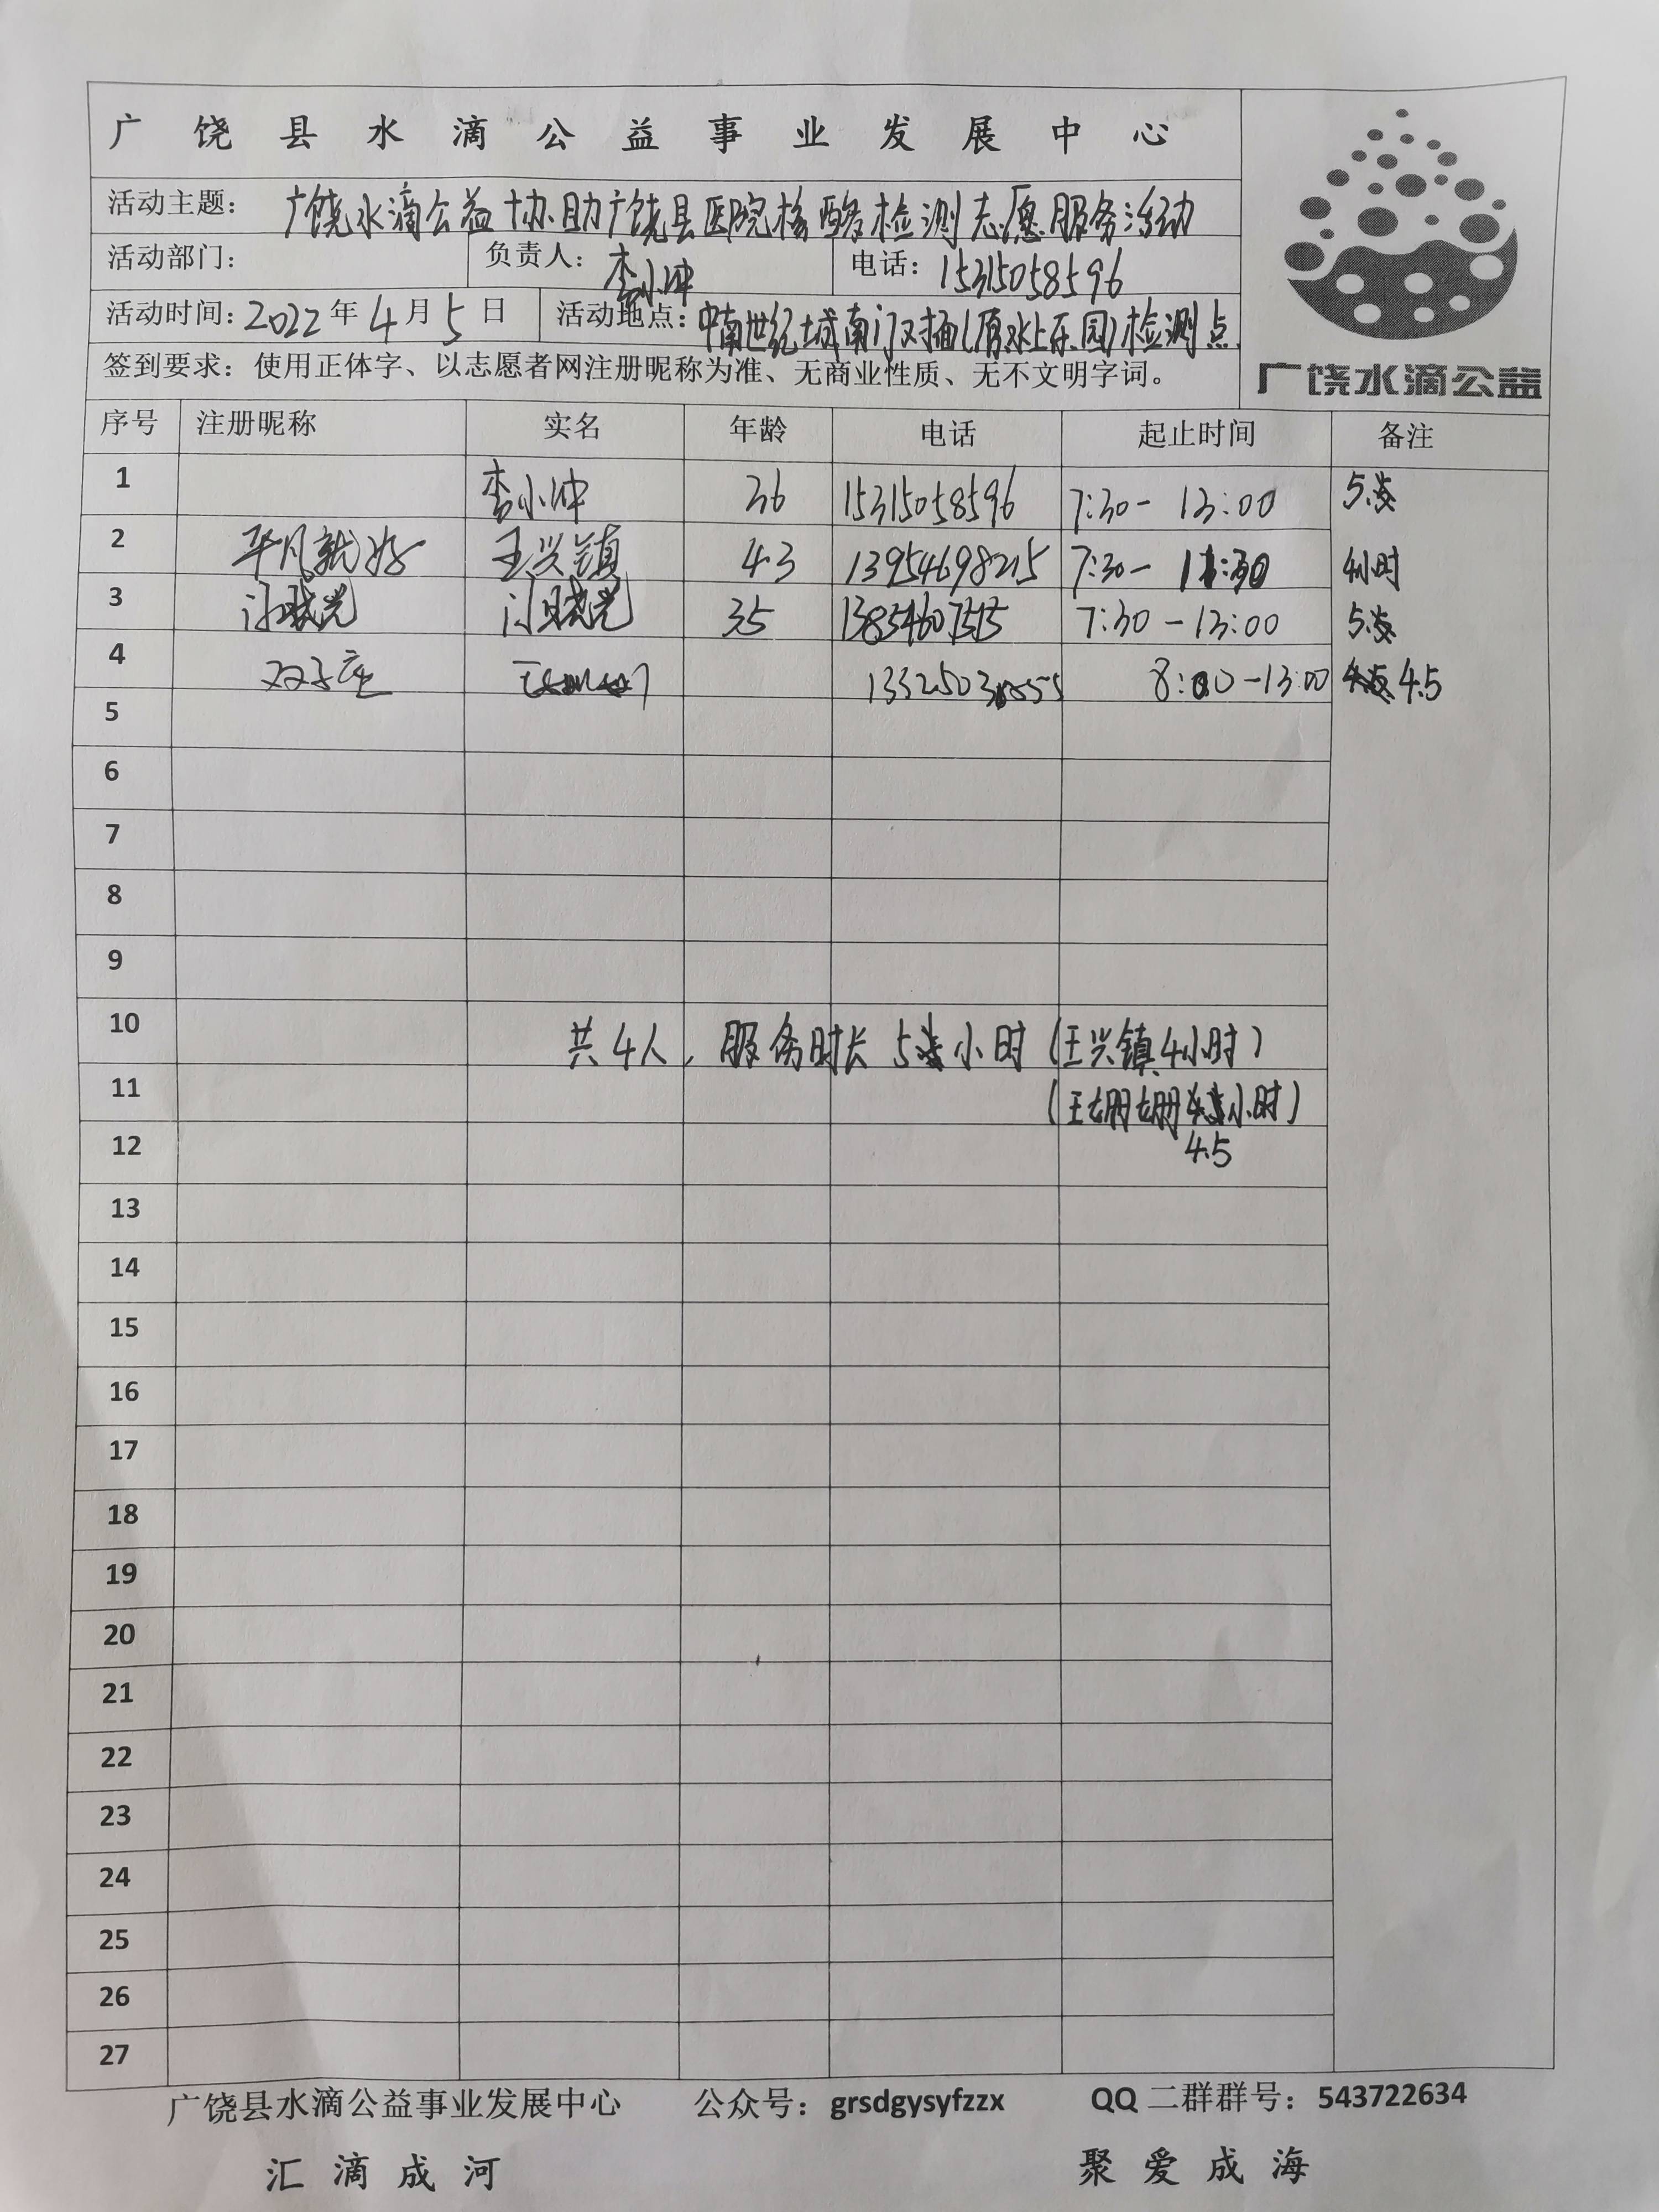 广饶县水滴公益事业发展中心
活动主题：广饶水滴公益协助广饶县医院核酸检测志愿服务活动
活动部门： 负责人：李小冲 电话：15315058596
活动时间：2022年4月5日 活动地点：中南世纪城南门对插(原水上乐园)检测点
签到要求：使用正体字、以志愿者网注册昵称为准、无商业性质、无不文明字词。
广饶水滴公益
序号 注册昵称 实名 年龄 电话 起止时间 备注
1 李小冲 36 15315058596 7:30-13:00 5.5
2 平凡就好 王兴镇 43 13954698215 7:30-11:30 4小时
3 门晓光 门晓光 35 13854607515 7:30-13:00 5.5
4 双子座 8:00-13:00 4.5
5
6
7
8
9
10 共4人，服务时长5 小时(王兴镇4小时)
11 (王姗姗 小时)
12 4.5
13
14
15
16
17
18
19
20
21
22
23
24
25
26
27
广饶县水滴公益事业发展中心 公众号：grsdgysyfzzx QQ二群群号：543722634
汇滴成河 聚爱成海